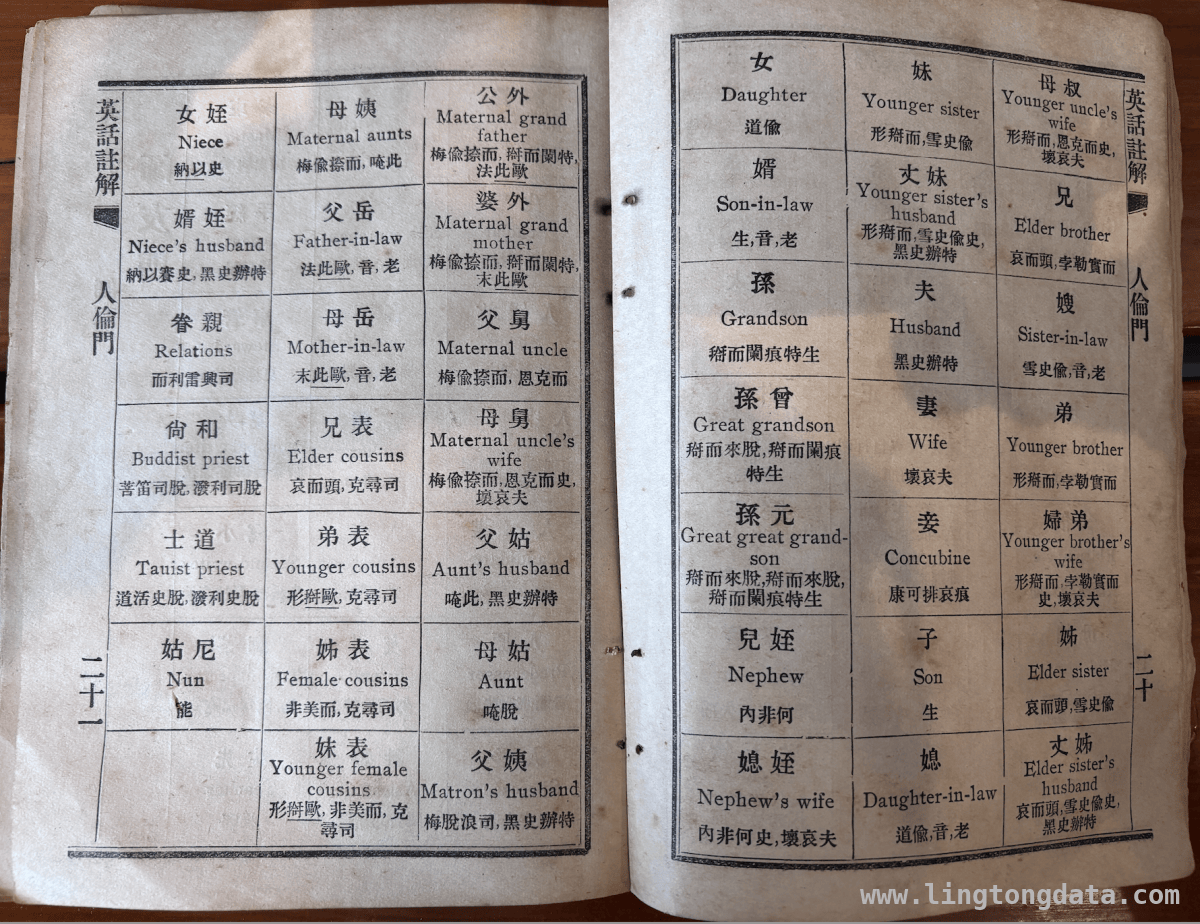 英話註解
人倫門
二十
叔母
Younger uncle's
wife
形搿而,恩克而史,
壞哀夫
兄
Elder brother
哀而頭,孛勒實而
嫂
Sister-in-law
雪史偸,音,老
弟
Younger brother
形搿而,孛勒實而
弟婦
Younger brother's
wife
形搿而,孛勒實而
史,壞哀夫
姊
Elder sister
哀而頭,雪史偸
姊丈
Elder sister's
husband
哀而頭,雪史偸史,
黑史辦特
妹
Younger sister
形搿而,雪史偸
妹丈
Younger sister's
husband
形搿而,雪史偸史,
黑史辦特
夫
Husband
黑史辦特
妻
Wife
壞哀夫
妾
Concubine
康可排哀痕
子
Son
生
媳
Daughter-in-law
道偸,音,老
女
Daughter
道偸
婿
Son-in-law
生,音,老
孫
Grandson
搿而闌痕特生
曾孫
Great grandson
搿而來脫,搿而闌痕
特生
元孫
Great great grand-
son
搿而來脫,搿而來脫,
搿而闌痕特生
姪兒
Nephew
內非何
姪媳
Nephew's wife
內非何史,壞哀夫
外公
Maternal grand
father
梅偸捺而,搿而闌特,
法此歐
外婆
Maternal grand
mother
梅偸捺而,搿而闌特,
末此歐
舅父
Maternal uncle
梅偸捺而,恩克而
舅母
Maternal uncle's
wife
梅偸捺而,恩克而史,
壞哀夫
姑父
Aunt's husband
唵此,黑史辦特
姑母
Aunt
唵脫
姨父
Matron's husband
梅脫浪司,黑史辦特
姨母
Maternal aunts
梅偸捺而,唵此
岳父
Father-in-law
法此歐,音,老
岳母
Mother-in-law
末此歐,音,老
表兄
Elder cousins
哀而頭,克尋司
表弟
Younger cousins
形搿歐,克尋司
表姊
Female cousins
非美而,克尋司
表妹
Younger female
cousins
形搿歐,非美而,克
尋司
姪女
Niece
納以史
姪婿
Niece's husband
納以賽史,黑史辦特
親眷
Relations
而利雷興司
和尙
Buddist priest
菩笛司脫,潑利司脫
道士
Tauist priest
道活史脫,潑利史脫
尼姑
Nun
能
英話註解
人倫門
二十一
www.lingtongdata.com